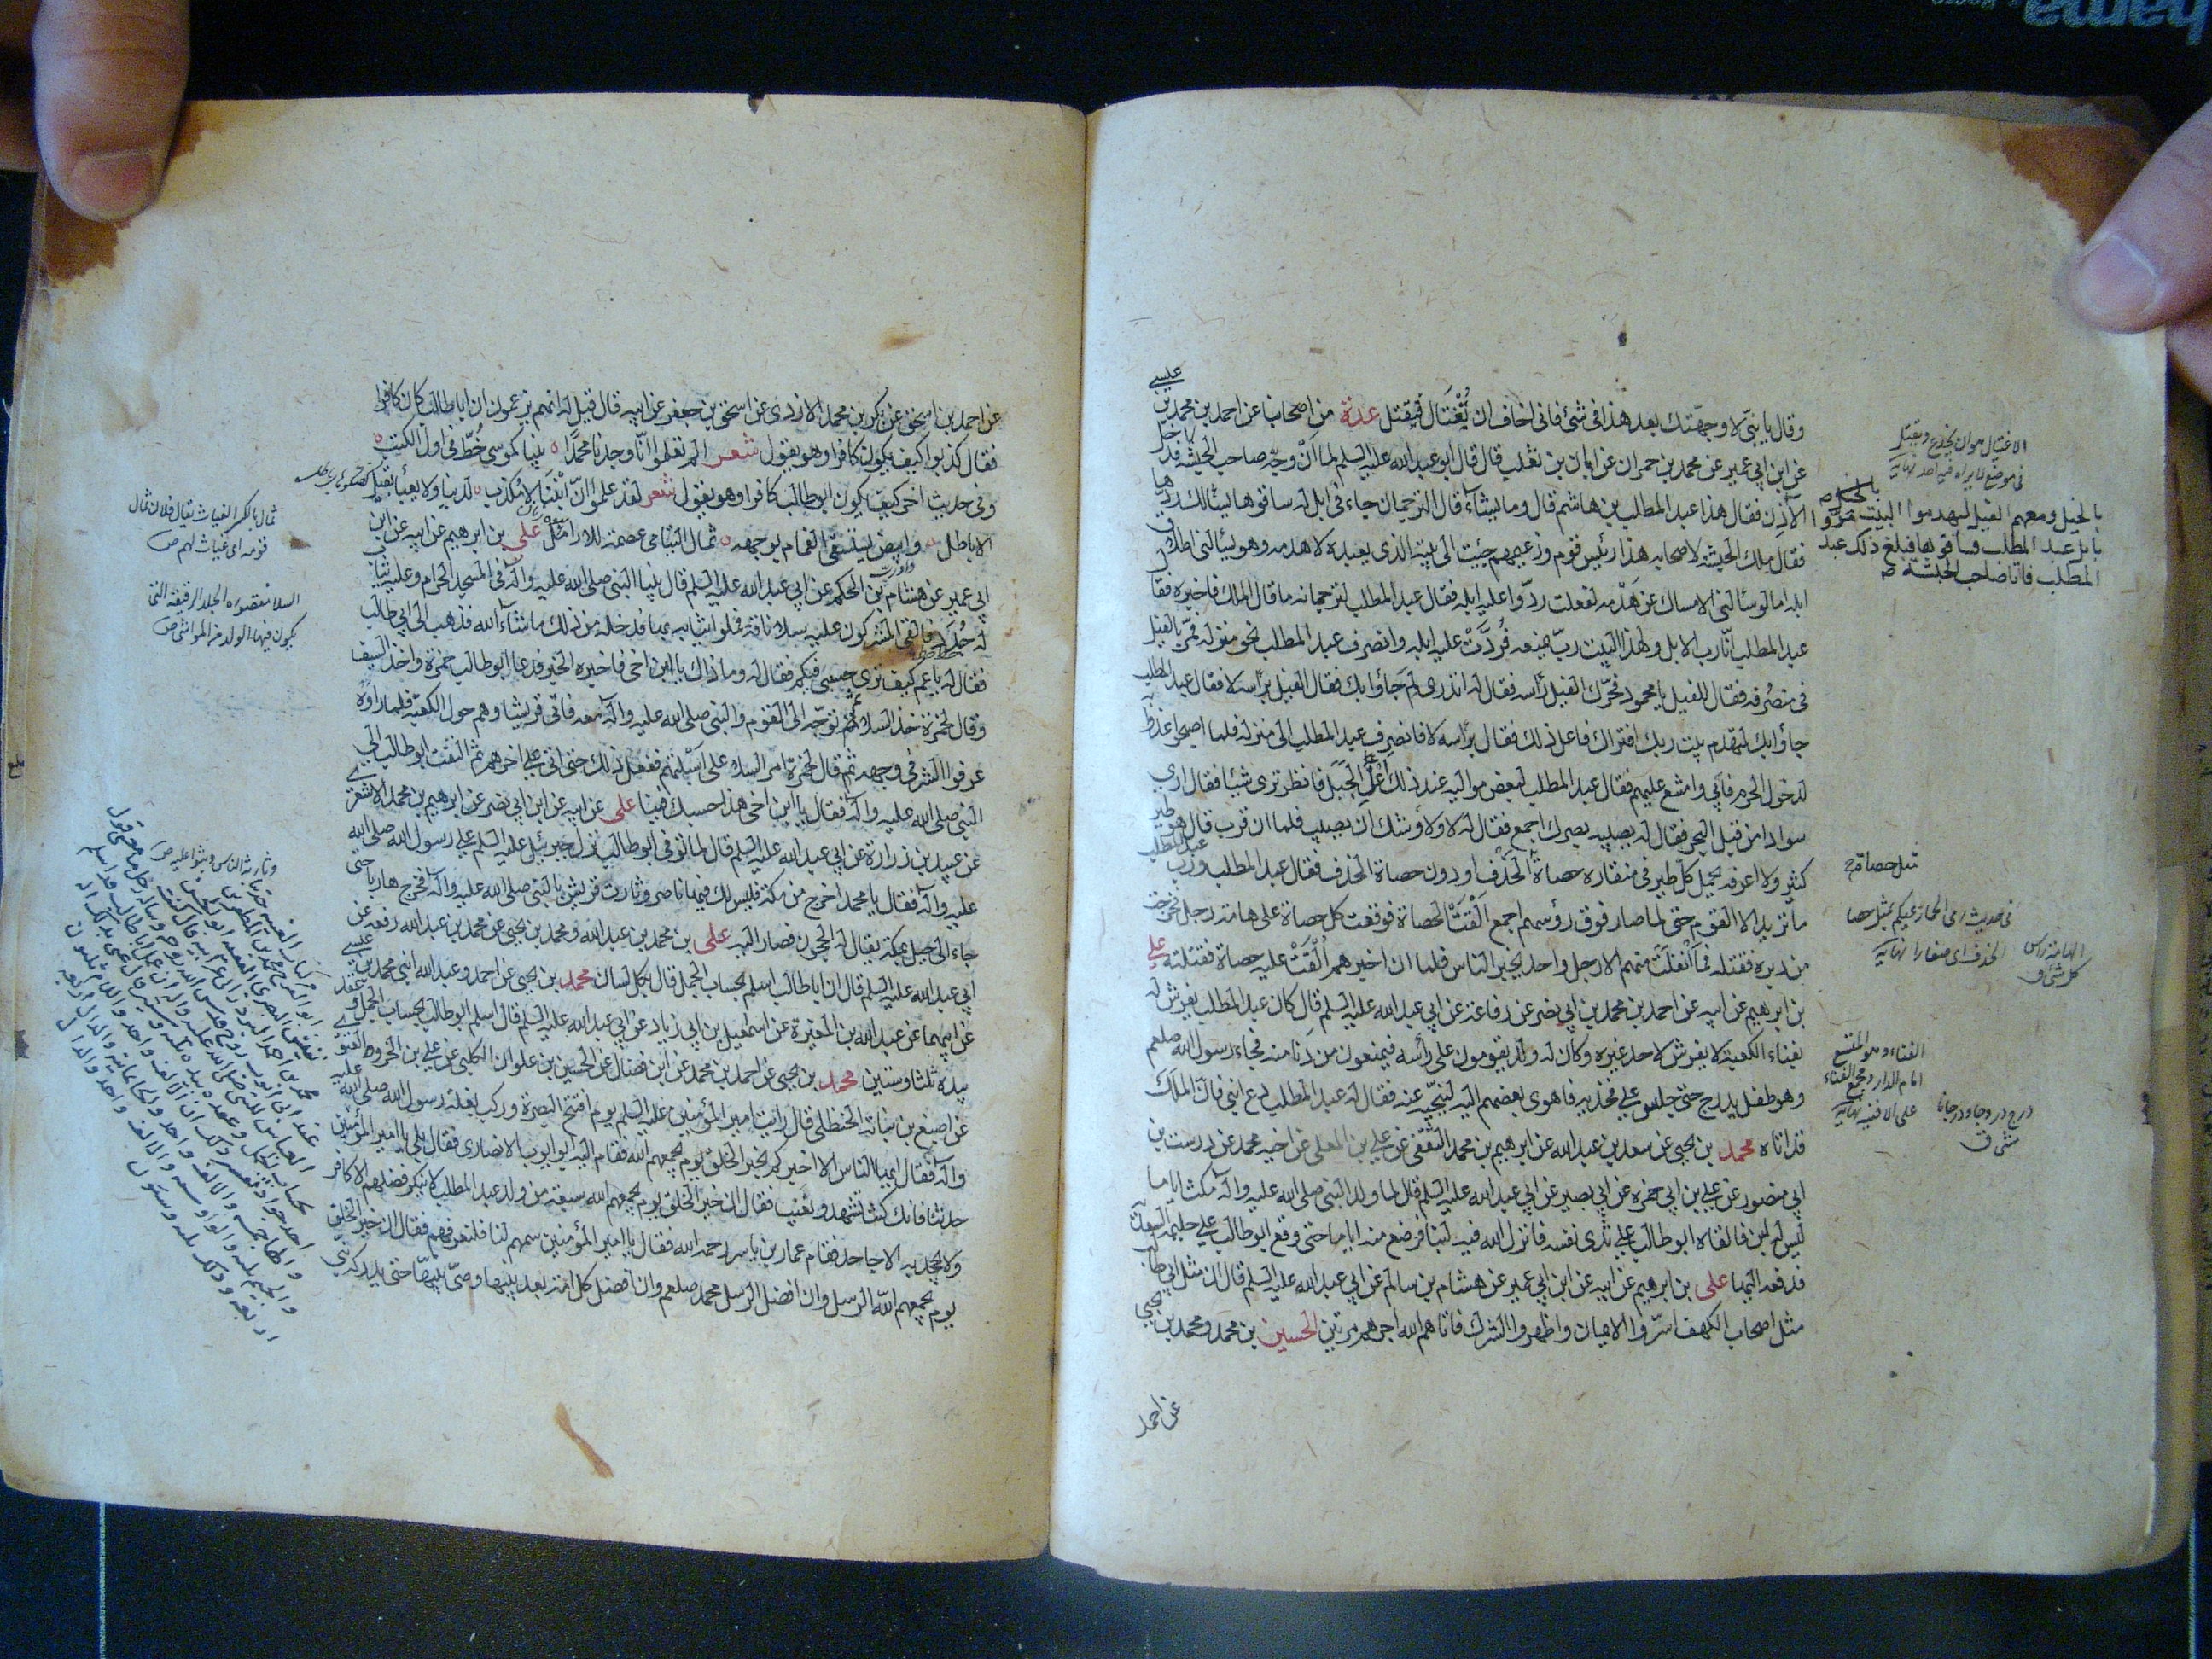 وقال يا بنيّ لا وجهتك بعد هذا في شئ فاني اخاف ان تُغتال فتقتل عدة من اصحابنا عن احمد بن محمد بن عيسى
عن ابن ابي عمير عن محمد بن حمران عن ابان بن تغلب قال قال ابو عبد الله عليه السلم لما ان وجّه صاحب الحبشة
الآذن فقال هذا عبد المطلب بن هاشم قال وما يشاء قال الترجمان جاء في ابل له ساقوها يسألك ردها
فقال ملك الحبشة لاصحابه هذا رئيس قوم وزعيمهم جئت الى بيته الذي يعبده لاهدمه وهو يسألني اطلاق
ابله اما لو سألني الامساك عن هدمه لفعلت ردّوا عليه ابله فقال عبد المطلب لترجمانه ما قال الملك فاخبره فقال
عبد المطلب انا رب الابل ولهذا البيت ربّ يمنعه فرُدّت عليه ابله وانصرف عبد المطلب نحو منزله فمرّ بالفيل
في منصرفه فقال للفيل يا محمود فحرّك الفيل رأسه فقال له اتدري لم جاؤا بك فقال الفيل برأسه لا فقال عبد المطلب
جاؤا بك لتهدم بيت ربك افتراك فاعل ذلك فقال برأسه لا فانصرف عبد المطلب الى منزله فلما اصبحوا غدوا به
لدخول الحرم فابي وامتنع عليهم فقال عبد المطلب لبعض مواليه عند ذلك اعل الجبل فانظر ترى شيئا فقال ارى
سوادا من قبل البحر فقال له يصيبه بصرك اجمع فقال له لا ولاوشك ان يصيب فلما ان قرب قال هو طير
كثير ولا اعرفه يحمل كل طير في منقاره حصاة مثل حصاة الخذف او دون حصاة الخذف فقال عبد المطلب ورب عبد المطلب
ما تريد الا القوم حتى لما صار فوق رؤسهم اجمع القت الحصاة فوقعت كل حصاة على هامة رجل فخرجت
من دبره فقتلته فما انفلت منهم الا رجل واحد يخبر الناس فلما ان اخبرهم القت عليه حصاة فقتلته علي
بن ابرهيم عن ابيه عن احمد بن محمد بن ابي نصر عن رفاعة عن ابي عبد الله عليه السلم قال كان عبد المطلب يفرش له
بفناء الكعبة لا يفرش لاحد غيره وكان له ولد يقومون على رأسه فيمنعون من دنا منه فجاء رسول الله صلعم
وهو طفل يدرج حتى جلس على فخذيه فاهوى بعضهم اليه لينحّيه عنه فقال له عبد المطلب دع ابني فان الملك
قد اتاه محمد بن يحيى عن سعد بن عبد الله عن ابرهيم بن محمد الثقفي عن علي بن المعلى عن اخيه محمد عن درست بن
ابي منصور عن علي بن ابي حمزه عن ابي بصير عن ابي عبد الله عليه السلم قال لما ولد النبي صلى الله عليه واله مكث اياما
ليس له لبن فالقاه ابو طالب على ثدي نفسه فانزل الله فيه لبنا فرضع منه اياما حتى وقع ابو طالب على حليمة السعدية
فدفعه اليها علي بن ابرهيم عن ابيه عن ابن ابي عمير عن هشام بن سالم عن ابي عبد الله عليه السلم قال ان مثل ابي طالب
مثل اصحاب الكهف اسرّوا الايمان واظهروا الشرك فاتاهم الله اجرهم مرتين الحسين بن محمد ومحمد بن يحيى
عن احمد
الاغتيال هو ان يخدع ويقتل
في موضع لا يراه فيه احد نهاية
بالخيل ومعهم الفيل ليهدموا البيت مروا
بابل عبد المطلب فساقوها فبلغ ذلك عبد
المطلب فاتا صاحب الحبشة
مثل حصاة
في حديث رمى الجمار عليكم بمثل حصا
الخذف اى صغارا نهاية
الهامة راس
كل شئ ق
الفناء وهو المتسع
امام الدار ويجمع الفناء
على الافنية نهاية
درج دروجا ودرجانا
مشى ق
عن احمد بن اسحق عن بكر بن محمد الازدى عن اسحق بن جعفر عن ابيه قال قيل له انهم يزعمون ان ابا طالب كان كافرا
فقال كذبوا كيف يكون كافرا وهو يقول شعر الم تعلموا انا وجدنا محمدا نبيا كموسى خُطّ في اول الكتب
وفي حديث آخر كيف يكون ابو طالب كافرا وهو يقول شعر لقد علموا ان ابننا لا مكذب لدينا ولا يعبأ بقيل
الاباطل وابيض يستسقى الغمام بوجهه ثمال اليتامى عصمة للارامل علي بن ابرهيم عن ابيه عن ابن
ابي عمير عن هشام بن الحكم عن ابي عبد الله عليه السلم قال بينا النبي صلى الله عليه واله في المسجد الحرام وعليه ثياب
له جُدد فالقى المشركون عليه سلا ناقة فملؤا ثيابه بها فدخله من ذلك ما شاء الله فذهب الى ابي طالب
فقال له يا عم كيف ترى حسبي فيكم فقال له وما ذاك يا ابن اخي فاخبره الخبر فدعا ابو طالب حمزة واخذ السيف
وقال لحمزة خذ السلا ثم توجّه الى القوم والنبي صلى الله عليه واله معه فاتى قريشا وهم حول الكعبة فلما راوه
عرفوا الشر في وجهه ثم قال لحمزة امر السلا على اسبلتهم ففعل ذلك حتى اتى على اخرهم ثم التفت ابو طالب الى
النبي صلى الله عليه واله فقال يا ابن اخي هذا حسبك فينا علي عن ابيه عن ابن ابي نصر عن ابرهيم بن محمد الاشعري
عن عبيد بن زرارة عن ابي عبد الله عليه السلم قال لما توفى ابو طالب نزل جبرئيل عليه السلم على رسول الله صلى الله
عليه واله فقال يا محمد اخرج من مكة فليس لك فيها ناصر وثارت قريش بالنبي صلى الله عليه واله فخرج هاربا حتى
جاء الى جبل بمكة يقال له الحجون فصار اليه علي بن محمد بن عبد الله ومحمد بن يحيى عن محمد بن عبد الله رفعه عن
ابي عبد الله عليه السلم قال ان ابا طالب اسلم بحساب الجمل قال بكل لسان محمد بن يحيى عن احمد وعبد الله ابنى محمد بن عيسى
عن ابيهما عن عبد الله بن المغيرة عن اسمعيل بن ابي زياد عن ابي عبد الله عليه السلم قال اسلم ابو طالب بحساب الجمل وعقد
بيده ثلثا وستين محمد بن يحيى عن احمد بن محمد عن ابن فضال عن الحسين بن علوان الكلبي عن علي بن الحزور الغنوى
عن اصبغ بن نباتة الحنظلى قال رايت امير المؤمنين عليه السلم يوم افتتح البصرة وركب بغلة رسول الله صلى الله عليه
واله فقال ايها الناس الا اخبركم بخير الخلق يوم يجمعهم الله فقام اليه ابو ايوب الانصارى فقال بلى يا امير المؤمنين
حدثنا فانك كنت تشهد ونغيب فقال ان خير الخلق يوم يجمعهم الله سبعة من ولد عبد المطلب لا ينكر فضلهم الا كافر
ولا يجحد به الا جاحد فقام عمار بن ياسر رحمه الله فقال يا امير المؤمنين سمهم لنا فلنعرفهم فقال ان خير الخلق
يوم يجمعهم الله الرسل وان افضل الرسل محمد صلعم وان افضل كل امة بعد نبيها وصىّ نبيها حتى يدركه نبىّ
ثمال بالكسر الغياث يقال فلان ثمال
قومه اى غياث لهم ص
السلا مقصورة الجلد الرقيقة التى
يكون فيها الولد من المواشى ص
وثار به الناس وثبوا عليه ص